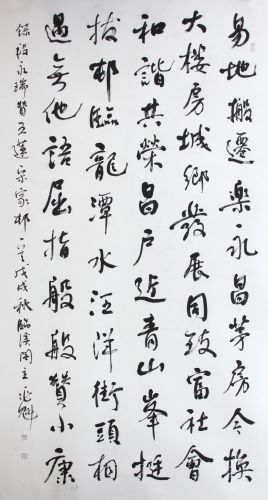 易地搬遷樂永昌茅房今換
大樓房城鄉發展同致富社會
和諧共榮昌戶近青山峯挺
拔邨臨龍潭水汪洋街頭相
遇無他語屈指般般贊小康
錄段永瑞贊五蓮宗家邨 戊戌秋臨溪閣主兆魁